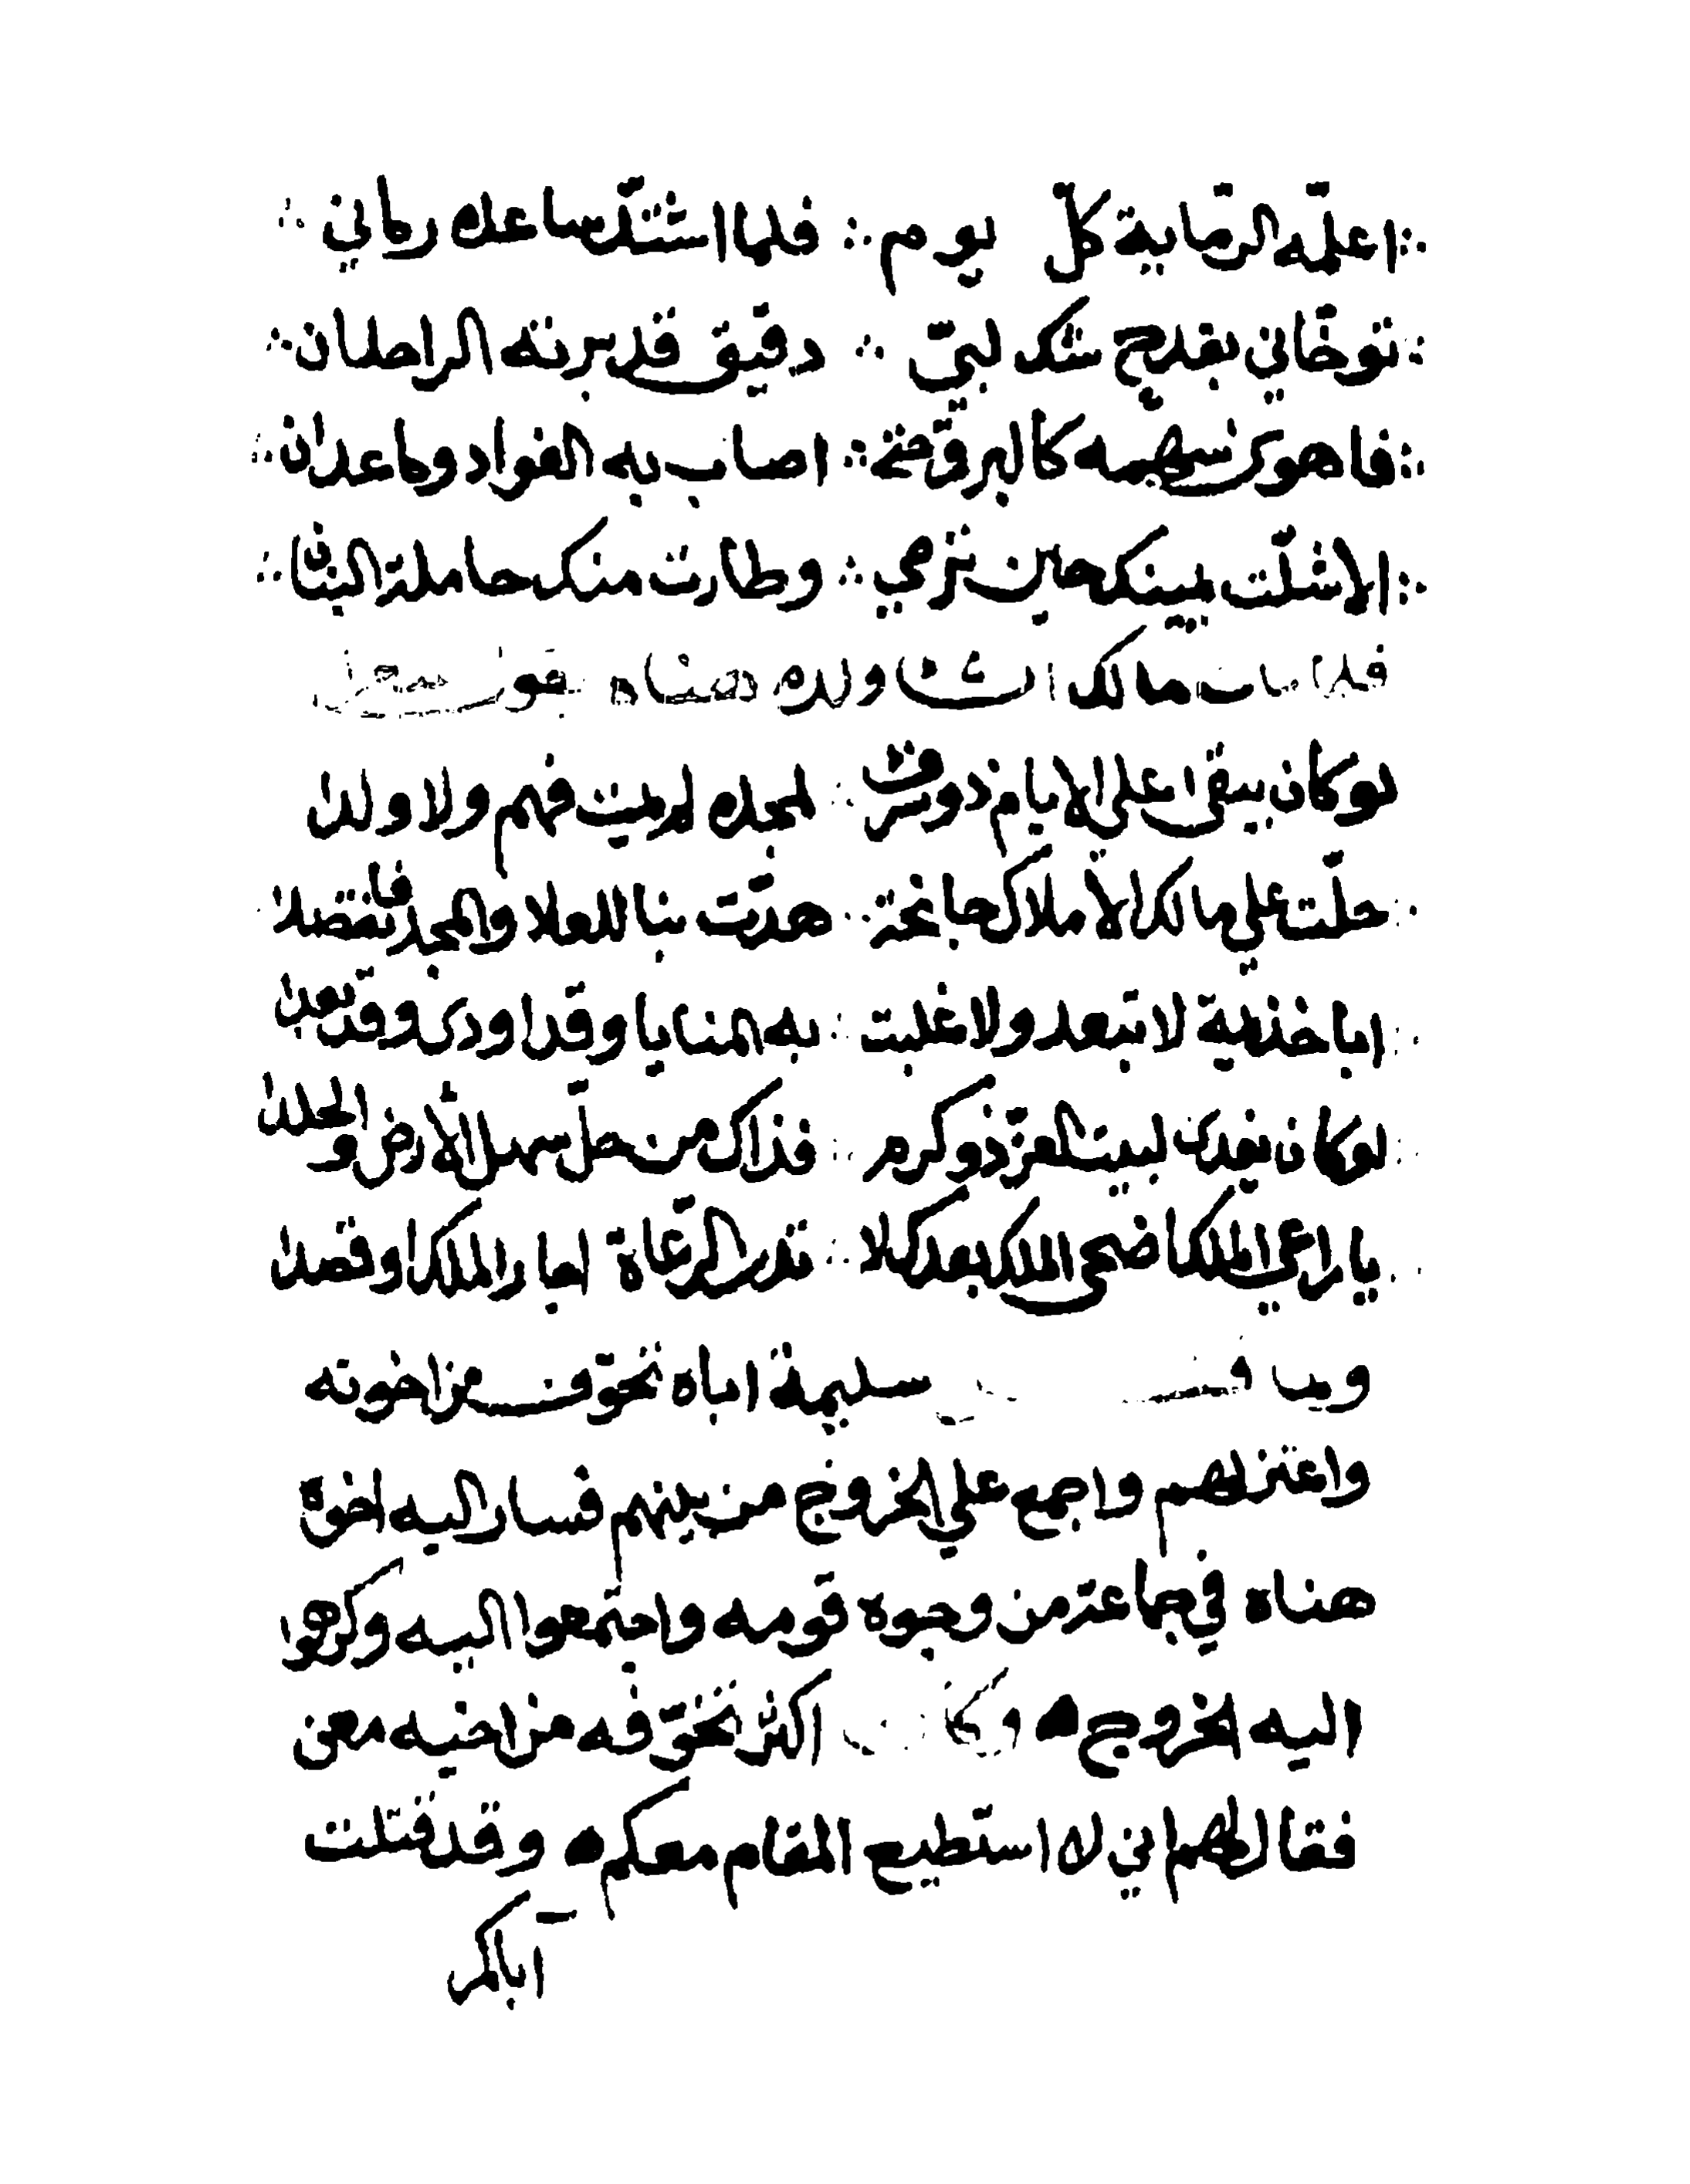 اعلمه الرماية كل يوم ∴ فلما اشتد ساعده رماني
توخاني بقدح شك لبي ∴ دقيق قد برته الراحتان
فاهوى سهمه كالبرق حتى ∴ اصاب به الفواد وما عداني
الا شلت يمينك حين ترمي ∴ وطارت منك حاملة البنان
فلما مات مالك انشا ولده هناه يقول
لو كان يبقى على الايام ذو شرف ∴ لمجده لم يمت فهم ولا ولدا
حلت على مالك الأملاك جائحة ∴ هدت بنا للعلا والمجد فانقصدا
ابا جذيمة لا تبعد ولا غلبت ∴ به المنايا وقد اودى وقد بعدا
لو كان يفدى لبيت العز ذو كرم ∴ فداك من حل سهل الأرض والجلدا
يا راعي الملك اضحى الملك بعدك لا ∴ تدري الرعاة اجار الملك او قصدا
وما سليمة اباه تخوف من اخوته
واعتزلهم واجمع على الخروج من بينهم فسار اليه اخوه
هناه في جماعة من وجوه قومه واجتمعوا اليه وكرهوا
اليه الخروج ه وكان اكثر تخوفه من اخيه معن
فقال لهم اني لا استطيع المقام معكم ه وقد قتلت
اباكم